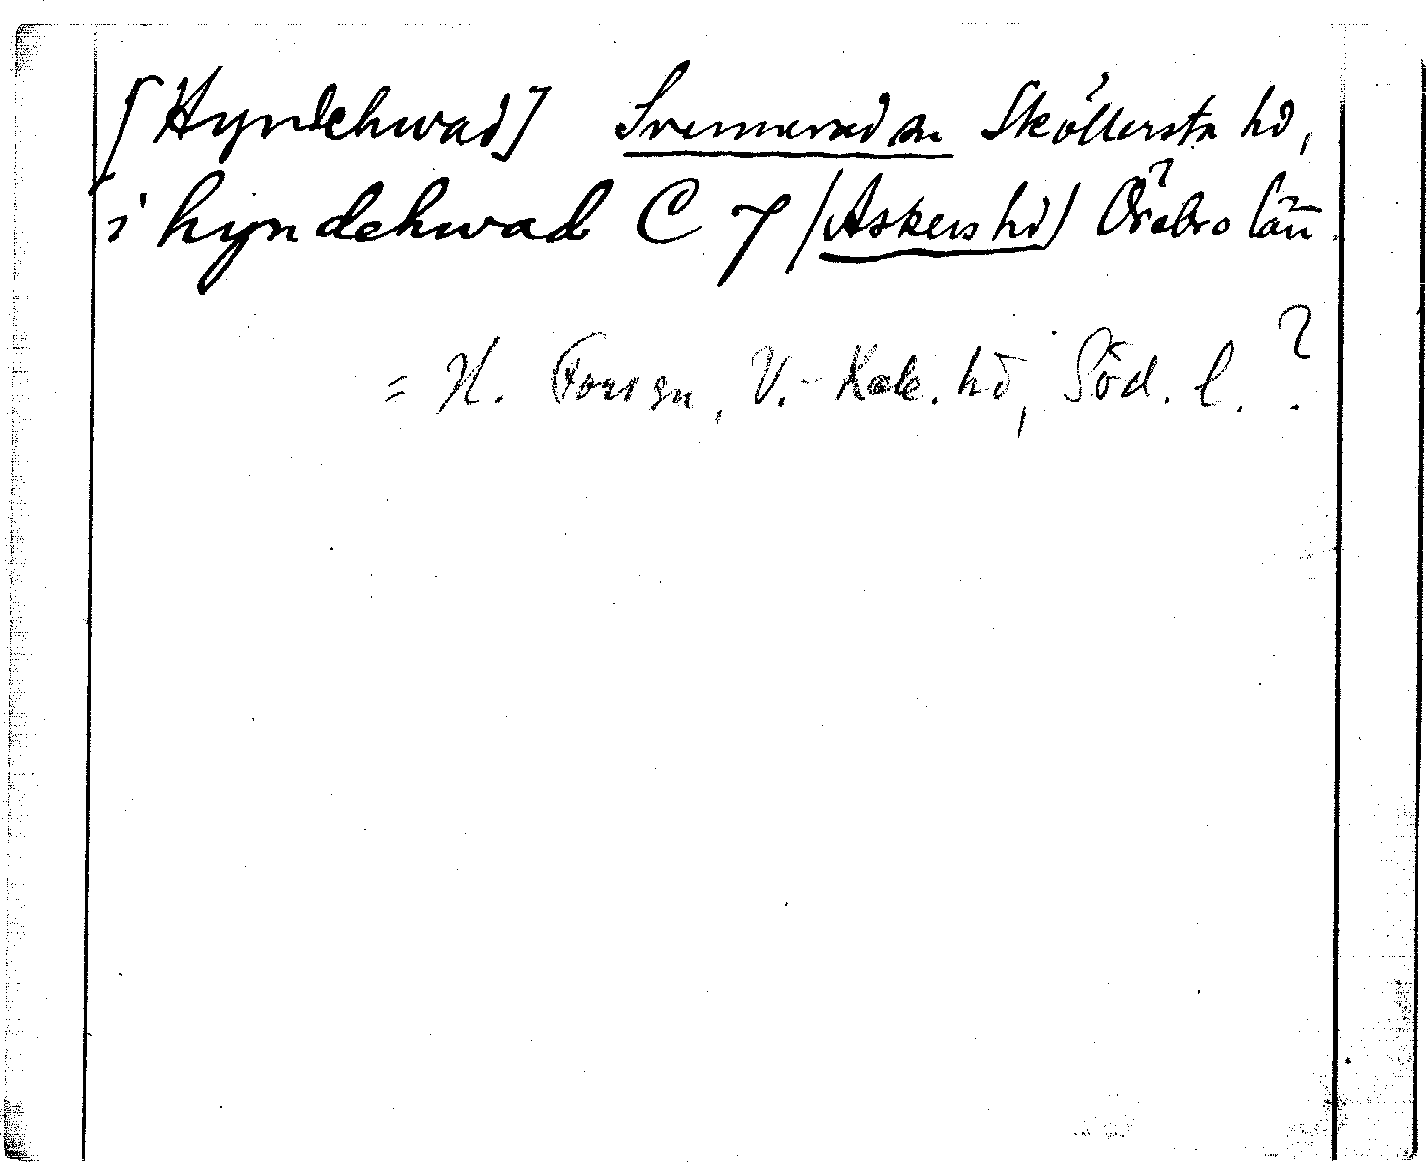 [Hyndehwad] Svennevad sn Sköllersta hd,
i hyndehwad C 7 (Askers hd) Örebro län.
= H. Fors sn, V.-Rek. hd, Söd. l. ?